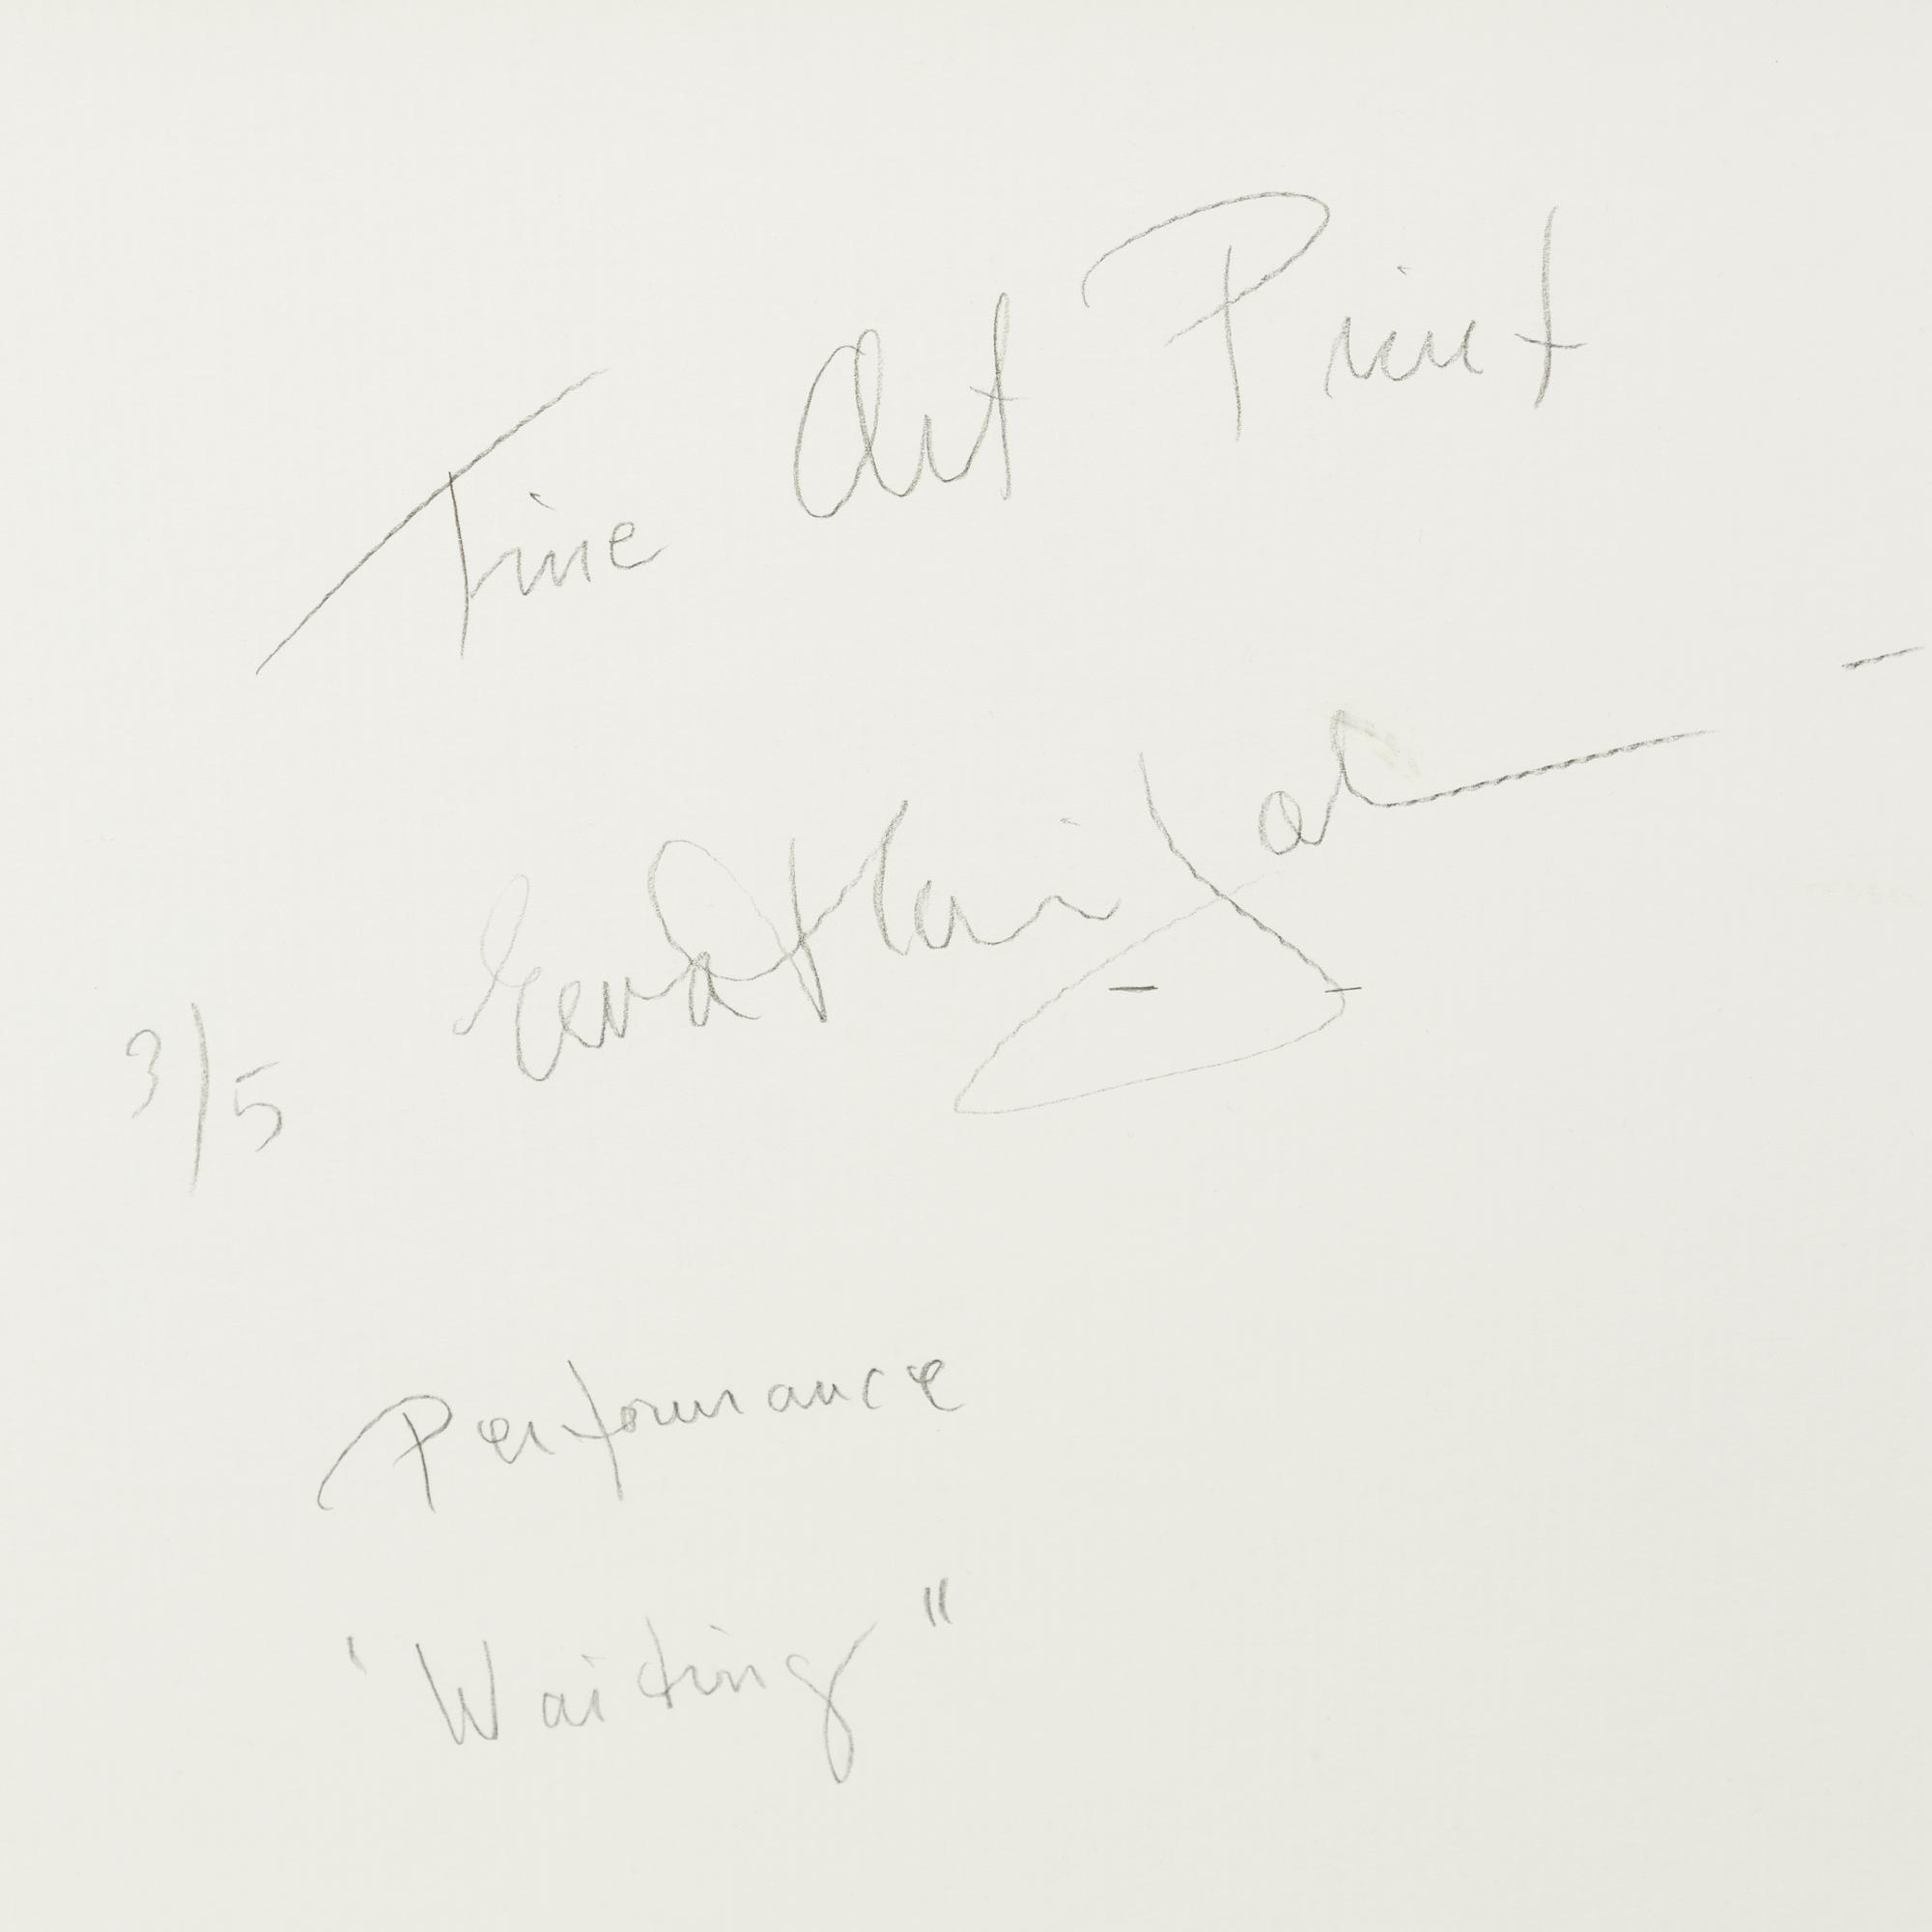 Fine Art Print
3/5
Performance
"Waiting"